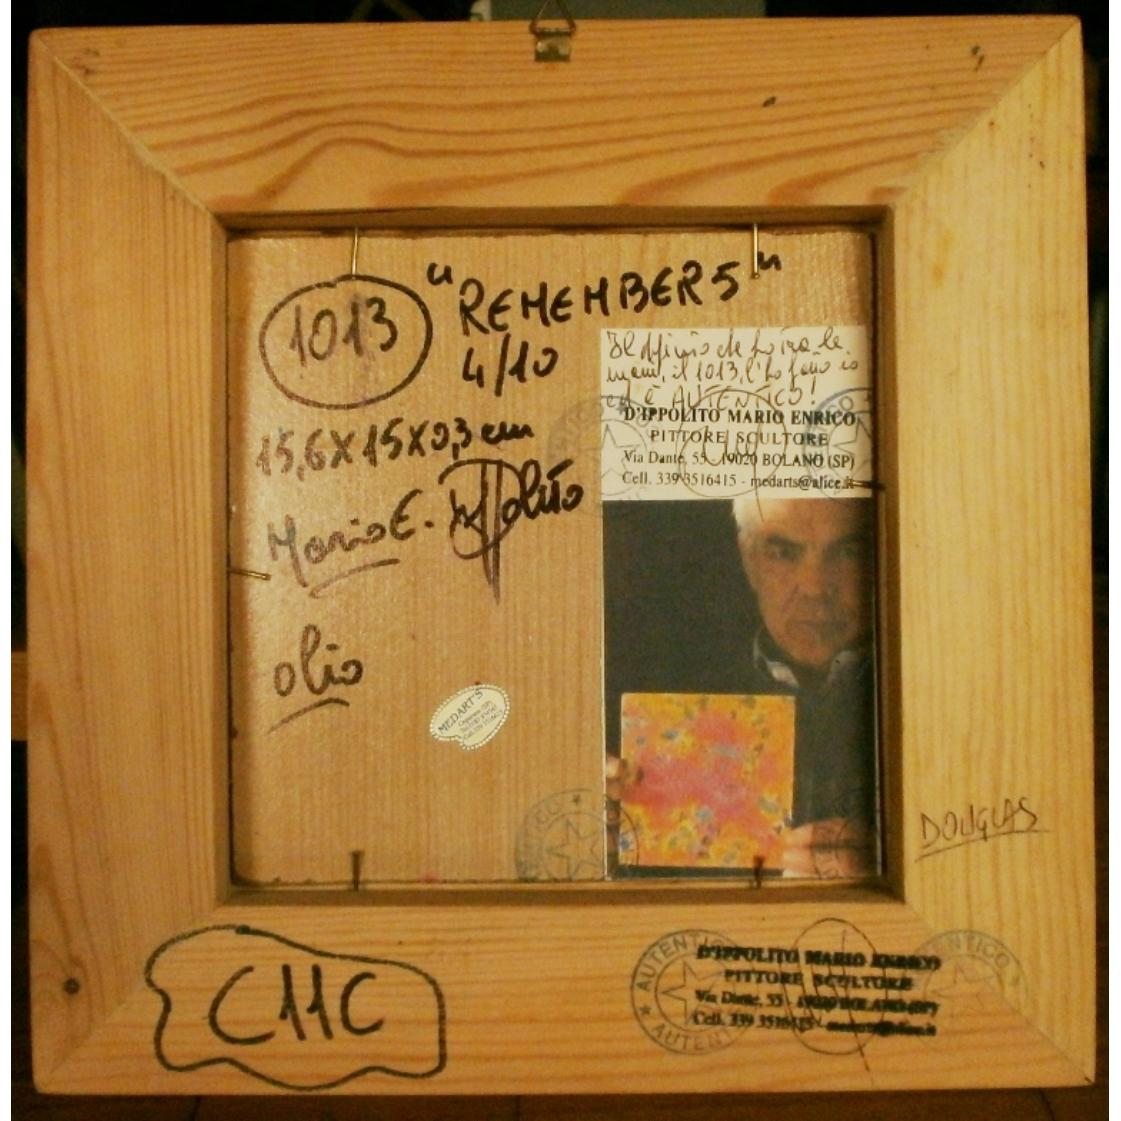 1013
"REMEMBER 5"
4/10
15,6X15X0,3 cm
Mario E. D'Ippolito
olio
MEDART'S
Il dipinto che ho tra le
mani, il 1013, l'ho fatto io
ed È AUTENTICO!
D'IPPOLITO MARIO ENRICO
PITTORE SCULTORE
Via Dante, 55 - 19020 BOLANO (SP)
Cell. 339 3516415 - medarts@alice.it
DOUGLAS
C11C
AUTENTICO
D'IPPOLITO MARIO ENRICO
PITTORE SCULTORE
Via Dante, 55 - 19020 BOLANO (SP)
Cell. 339 3516415 - medarts@alice.it
AUTENTICO